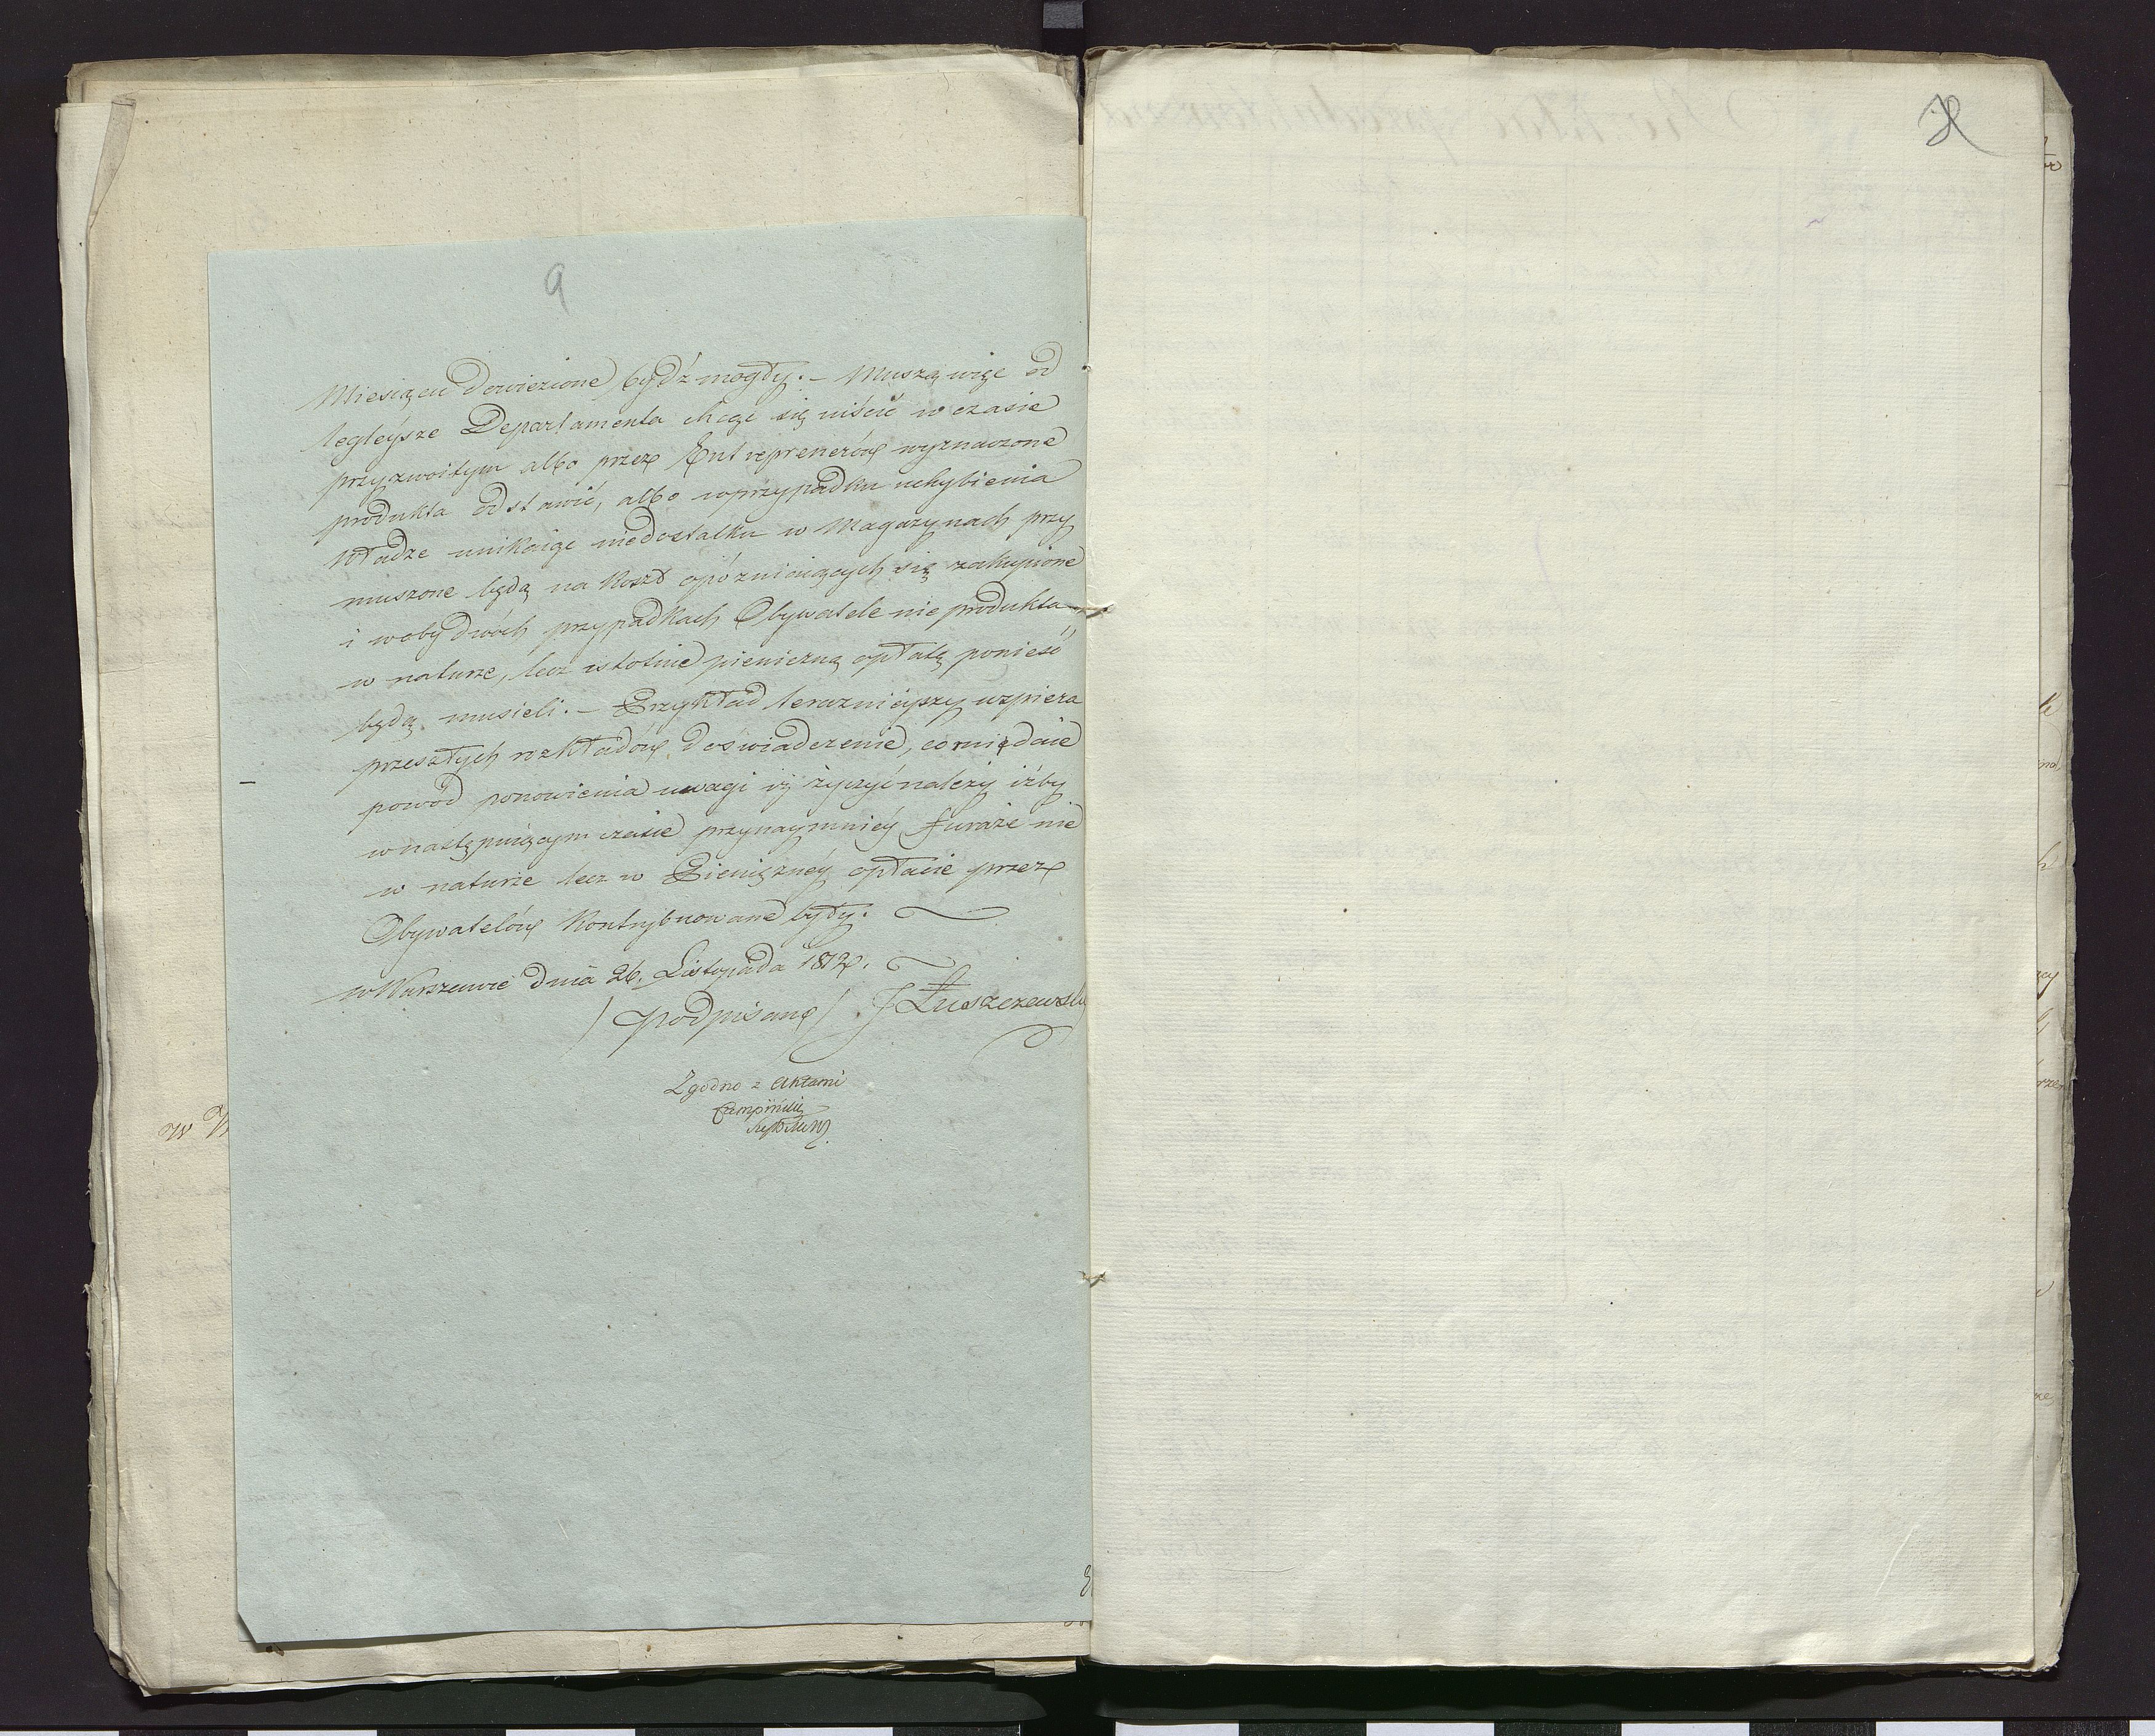 9
Miesiącu dowiezione bydź mogły. – Muszą więc od
legleysze Departamenta chcąc się uiścić w czasie
przyzwoitym albo przez Entreprenerów wyznaczone
produkta odstawić, albo w przypadku uchybienia
Władze unikaiąc niedostatku w Magazynach przy
muszone będą na koszt opóźniaiących się zakupione
i w obydwóch przypadkach Obywatele nie produkta
w naturze, lecz istotnie pieniezną opłatę ponieść
będą musieli. – Przykład teraznieyszy wspiera
przeszłych rozkładów doświadczenie, co mię daie
powód ponowienia uwagi iż życzyć należy iżby
w następuiącym czasie przynaymniéy furaże nie
w naturze lecz w Pieniężnéy opłacie przez
Obywatelów kontrybuowane były.
w Warszawie dnia 26. Listopada 1812.
/ podpisano / J Łuszczewski
Zgodno z Aktami
w W